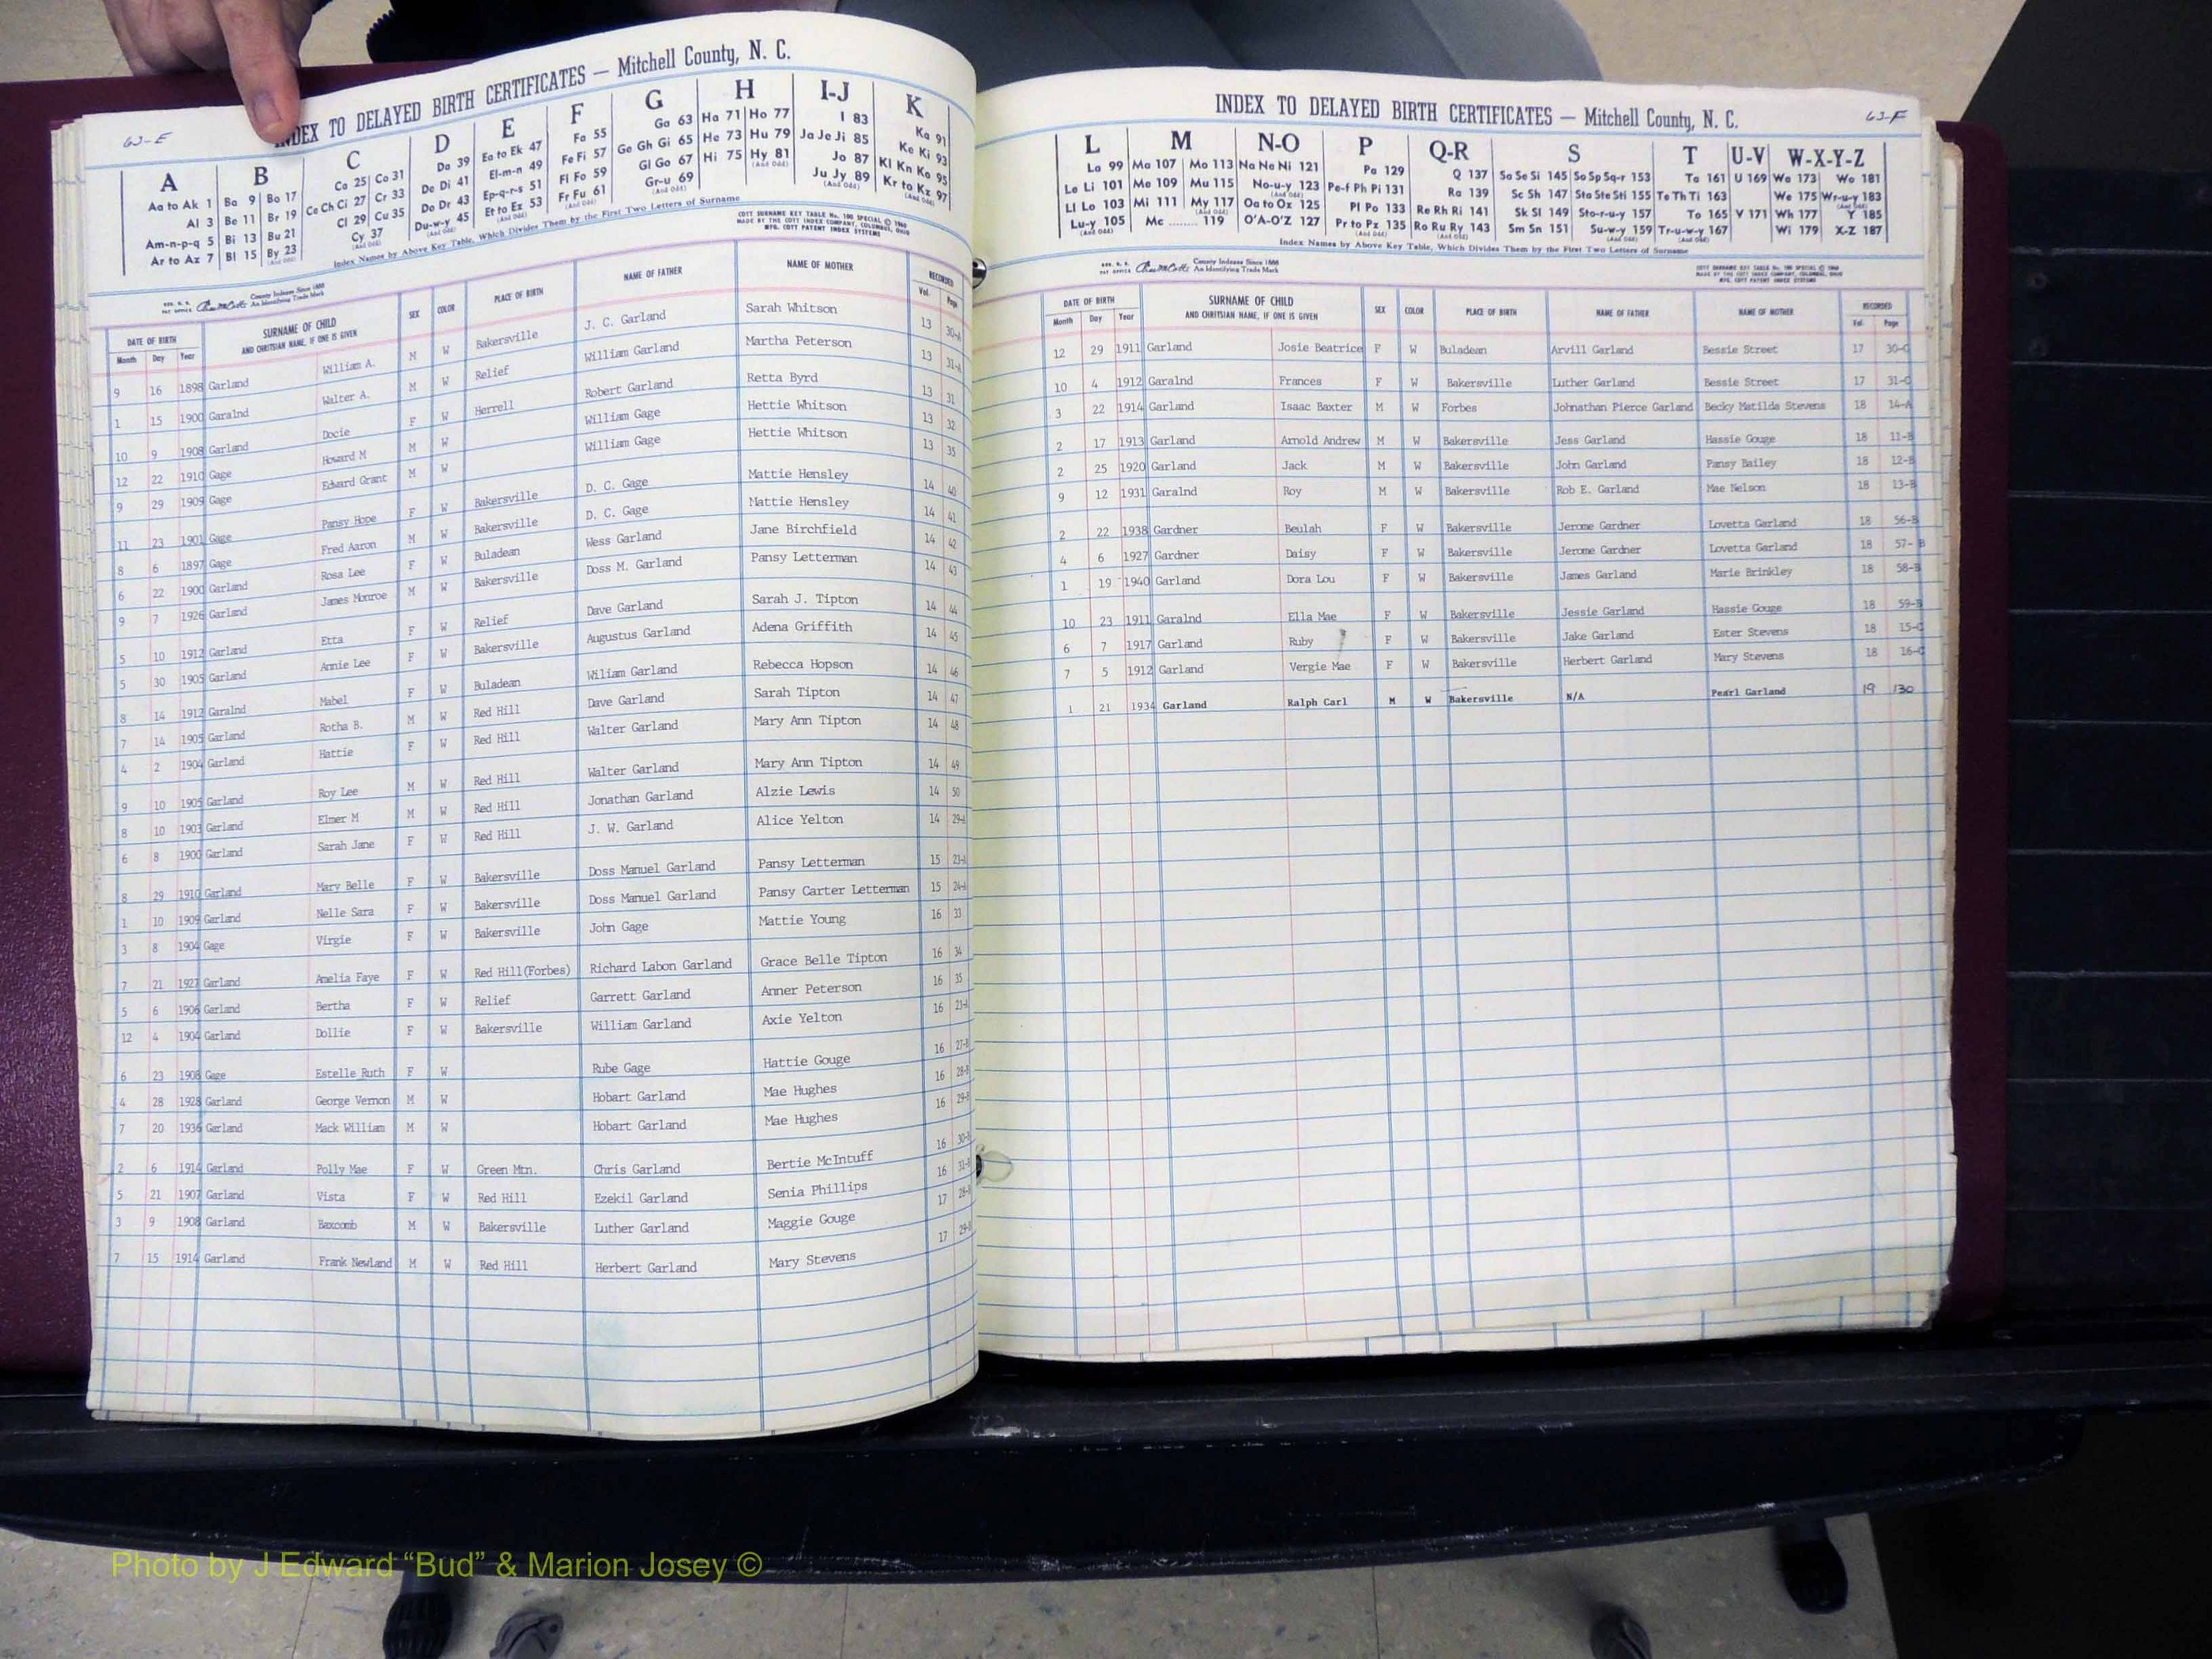 63-E
INDEX TO DELAYED BIRTH CERTIFICATES — Mitchell County, N. C.
A B C D E F G H I-J K
Aa to Ak 1 Ba 9 Bo 17 Ca 25 Co 31 Da 39 Ea to Ek 47 Fa 55 Ga 63 Ha 71 Ho 77 I 83 Ka 91
Al 3 Be 11 Br 19 Ce Ch Ci 27 Cr 33 De Di 41 El-m-n 49 Fe Fi 57 Ge Gh Gi 65 He 73 Hu 79 Ja Je Ji 85 Ke Ki 93
Am-n-p-q 5 Bi 13 Bu 21 Cl 29 Cu 35 Do Dr 43 Ep-q-r-s 51 Fl Fo 59 Gl Go 67 Hi 75 Hy 81 Jo 87 Kl Kn Ko 95
Ar to Az 7 Bl 15 By 23 Cy 37 Du-w-y 45 Et to Ez 53 Fr Fu 61 Gr-u 69 Ju Jy 89 Kr to Kz 97
Index Names by Above Key Table, Which Divides Them by the First Two Letters of Surname
COTT SURNAME KEY TABLE No. 100 SPECIAL © 1960
MADE BY THE COTT INDEX COMPANY, COLUMBUS, OHIO
MFG. COTT PATENT INDEX SYSTEMS
County Indexes Since 1888
An Identifying Trade Mark
DATE OF BIRTH SURNAME OF CHILD SEX COLOR PLACE OF BIRTH NAME OF FATHER NAME OF MOTHER RECORDED
Month Day Year AND CHRITSIAN NAME, IF ONE IS GIVEN Vol. Page
9 16 1898 Garland William A. M W Bakersville J. C. Garland Sarah Whitson 13 30-A
1 15 1900 Garalnd Walter A. M W Relief William Garland Martha Peterson 13 31-A
10 9 1908 Garland Docie F W Herrell Robert Garland Retta Byrd 13 31
12 22 1910 Gage Howard M M W William Gage Hettie Whitson 13 32
9 29 1909 Gage Edward Grant M W William Gage Hettie Whitson 13 35
11 23 1901 Gage Pansy Hope F W Bakersville D. C. Gage Mattie Hensley 14 40
8 6 1897 Gage Fred Aaron M W Bakersville D. C. Gage Mattie Hensley 14 41
6 22 1900 Garland Rosa Lee F W Buladean Wess Garland Jane Birchfield 14 42
9 7 1926 Garland James Monroe M W Bakersville Doss M. Garland Pansy Letterman 14 43
5 10 1912 Garland Etta F W Relief Dave Garland Sarah J. Tipton 14 44
5 30 1905 Garland Annie Lee F W Bakersville Augustus Garland Adena Griffith 14 45
8 14 1912 Garalnd Mabel F W Buladean Wiliam Garland Rebecca Hopson 14 46
7 14 1905 Garland Rotha B. M W Red Hill Dave Garland Sarah Tipton 14 47
4 2 1904 Garland Hattie F W Red Hill Walter Garland Mary Ann Tipton 14 48
9 10 1905 Garland Roy Lee M W Red Hill Walter Garland Mary Ann Tipton 14 49
8 10 1903 Garland Elmer M M W Red Hill Jonathan Garland Alzie Lewis 14 50
6 8 1900 Garland Sarah Jane F W Red Hill J. W. Garland Alice Yelton 14 29-A
8 29 1910 Garland Mary Belle F W Bakersville Doss Manuel Garland Pansy Letterman 15 23-A
1 10 1909 Garland Nelle Sara F W Bakersville Doss Manuel Garland Pansy Carter Letterman 15 24-A
3 8 1904 Gage Virgie F W Bakersville John Gage Mattie Young 16 33
7 21 1927 Garland Amelia Faye F W Red Hill(Forbes) Richard Labon Garland Grace Belle Tipton 16 34
5 6 1906 Garland Bertha F W Relief Garrett Garland Anner Peterson 16 35
12 4 1904 Garland Dollie F W Bakersville William Garland Axie Yelton 16 23-A
6 23 1908 Gage Estelle Ruth F W Rube Gage Hattie Gouge 16 27-B
4 28 1928 Garland George Vernon M W Hobart Garland Mae Hughes 16 28-B
7 20 1936 Garland Mack William M W Hobart Garland Mae Hughes 16 29-B
2 6 1914 Garland Polly Mae F W Green Mtn. Chris Garland Bertie McIntuff 16 30-B
5 21 1907 Garland Vista F W Red Hill Ezekil Garland Senia Phillips 16 31-B
3 9 1908 Garland Baxcomb M W Bakersville Luther Garland Maggie Gouge 17
7 15 1914 Garland Frank Newland M W Red Hill Herbert Garland Mary Stevens 17
63-F
INDEX TO DELAYED BIRTH CERTIFICATES — Mitchell County, N. C.
L M N-O P Q-R S T U-V W-X-Y-Z
La 99 Ma 107 Mo 113 Na Ne Ni 121 Pa 129 Q 137 Sa Se Si 145 So Sp Sq-r 153 Ta 161 U 169 Wa 173 Wo 181
Le Li 101 Me 109 Mu 115 No-u-y 123 Pe-f Ph Pi 131 Ra 139 Sc Sh 147 Sta Ste Sti 155 Te Th Ti 163 We 175 Wr-u-y 183
Ll Lo 103 Mi 111 My 117 Oa to Oz 125 Pl Po 133 Re Rh Ri 141 Sk Sl 149 Sto-r-u-y 157 To 165 V 171 Wh 177 Y 185
Lu-y 105 Mc ........ 119 O'A-O'Z 127 Pr to Pz 135 Ro Ru Ry 143 Sm Sn 151 Su-w-y 159 Tr-u-w-y 167 Wi 179 X-Z 187
Index Names by Above Key Table, Which Divides Them by the First Two Letters of Surname
County Indexes Since 1888
An Identifying Trade Mark
DATE OF BIRTH SURNAME OF CHILD SEX COLOR PLACE OF BIRTH NAME OF FATHER NAME OF MOTHER RECORDED
Month Day Year AND CHRITSIAN NAME, IF ONE IS GIVEN Vol. Page
12 29 1911 Garland Josie Beatrice F W Buladean Arvill Garland Bessie Street 17 30-C
10 4 1912 Garalnd Frances F W Bakersville Luther Garland Bessie Street 17 31-C
3 22 1914 Garland Isaac Baxter M W Forbes Johnathan Pierce Garland Becky Matilda Stevens 18 14-A
2 17 1913 Garland Arnold Andrew M W Bakersville Jess Garland Hassie Gouge 18 11-B
2 25 1920 Garland Jack M W Bakersville John Garland Pansy Bailey 18 12-B
9 12 1931 Garalnd Roy M W Bakersville Rob E. Garland Mae Nelson 18 13-B
2 22 1938 Gardner Beulah F W Bakersville Jerome Gardner Lovetta Garland 18 56-B
4 6 1927 Gardner Daisy F W Bakersville Jerome Gardner Lovetta Garland 18 57- B
1 19 1940 Garland Dora Lou F W Bakersville James Garland Marie Brinkley 18 58-B
10 23 1911 Garalnd Ella Mae F W Bakersville Jessie Garland Hassie Gouge 18 59-B
6 7 1917 Garland Ruby F W Bakersville Jake Garland Ester Stevens 18 15-C
7 5 1912 Garland Vergie Mae F W Bakersville Herbert Garland Mary Stevens 18 16-C
1 21 1934 Garland Ralph Carl M W Bakersville N/A Pearl Garland 19 130
Photo by J Edward “Bud” & Marion Josey ©